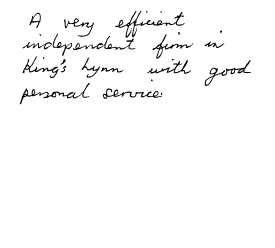 A very efficient
independent firm in
King's Lynn with good
personal service.